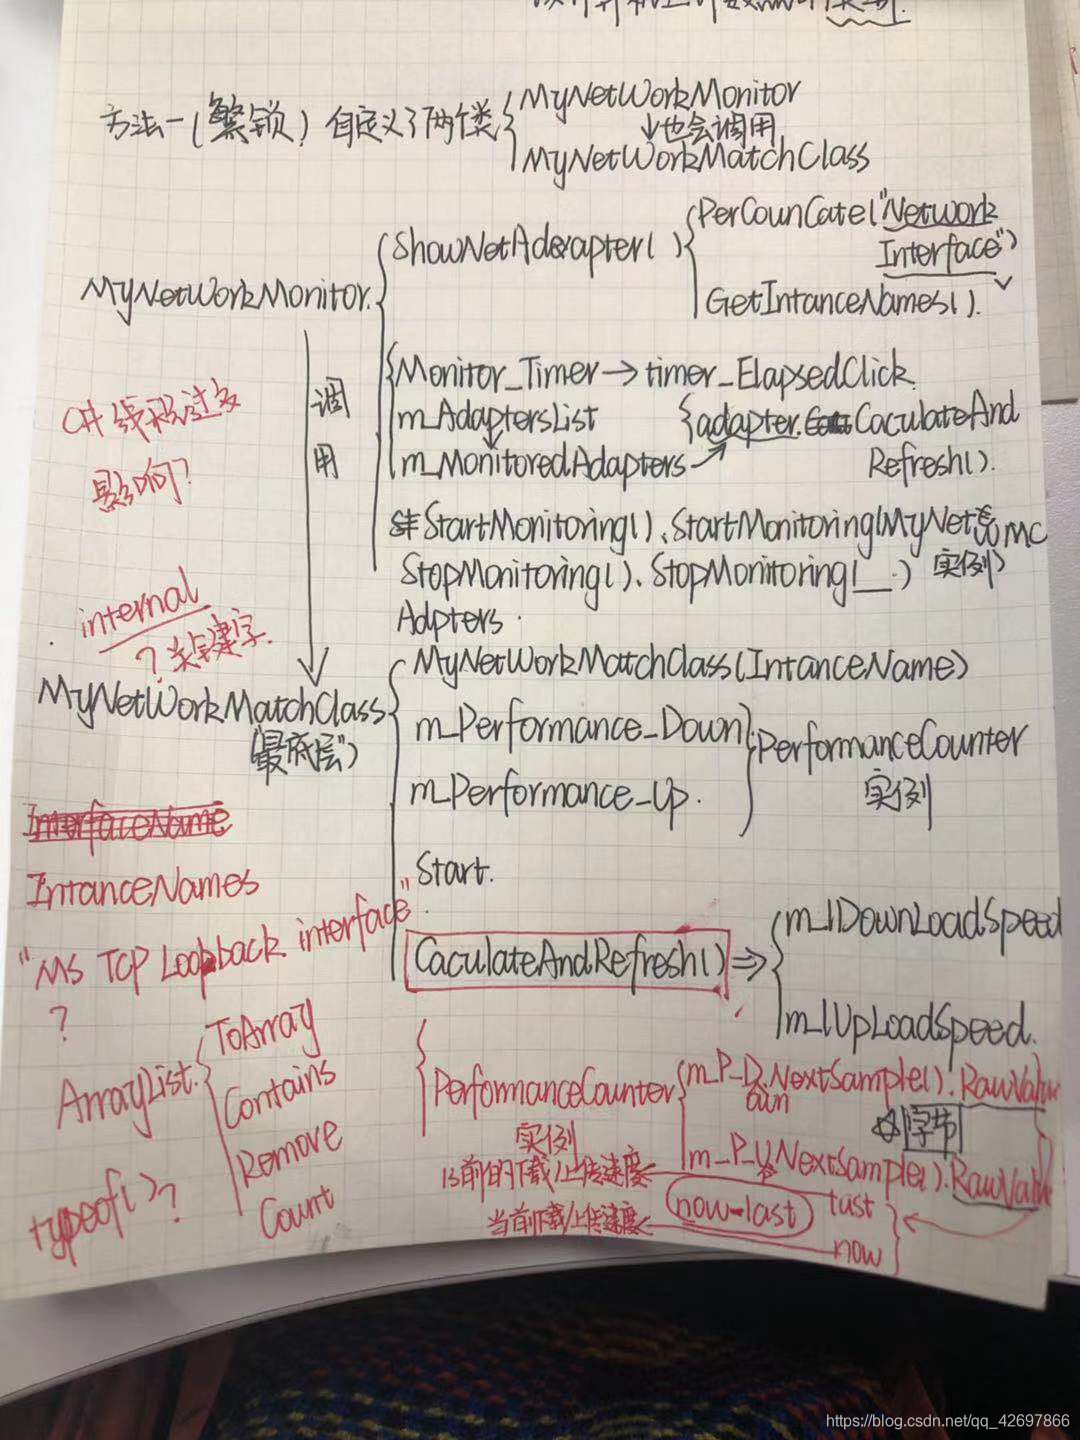 方法一(繁锁) 自定义了两个类
MyNetWorkMonitor
也会调用
MyNetWorkMatchClass
MyNetWorkMonitor.
ShowNetAderapter( )
PerCounCate("Network
Interface")
GetIntanceNames().
Monitor_Timer → timer_ElapsedClick.
m_AdaptersList
m_MonitoredAdapters
adapter. CaculateAnd
Refresh().
StartMonitoring()、StartMonitoring(MyNet
实例)
StopMonitoring()、StopMonitoring(__.)
Adpters.
调
用
C#线程过多
影响?
internal
? 关键字.
MyNetWorkMatchClass
(最底层")
MyNetWorkMatchClass(IntanceName)
m_Performance_Down
m_Performance_Up.
PerformanceCounter
实例
Start.
CaculateAndRefresh() ⇒
m_lDownLoadSpeed
m_lUpLoadSpeed.
InterfaceName
IntanceNames
"MS TCP Loopback interface"
?
ArrayList.
ToArray
Contains
Remove
Count
typeof()?
PerformanceCounter
实例
m_P_D.NextSample().RawValue
own
☆字节
m_P_U.NextSample().RawValue
1s前的下载/上传速度
当前下载/上传速度
now-last
last
now
https://blog.csdn.net/qq_42697866